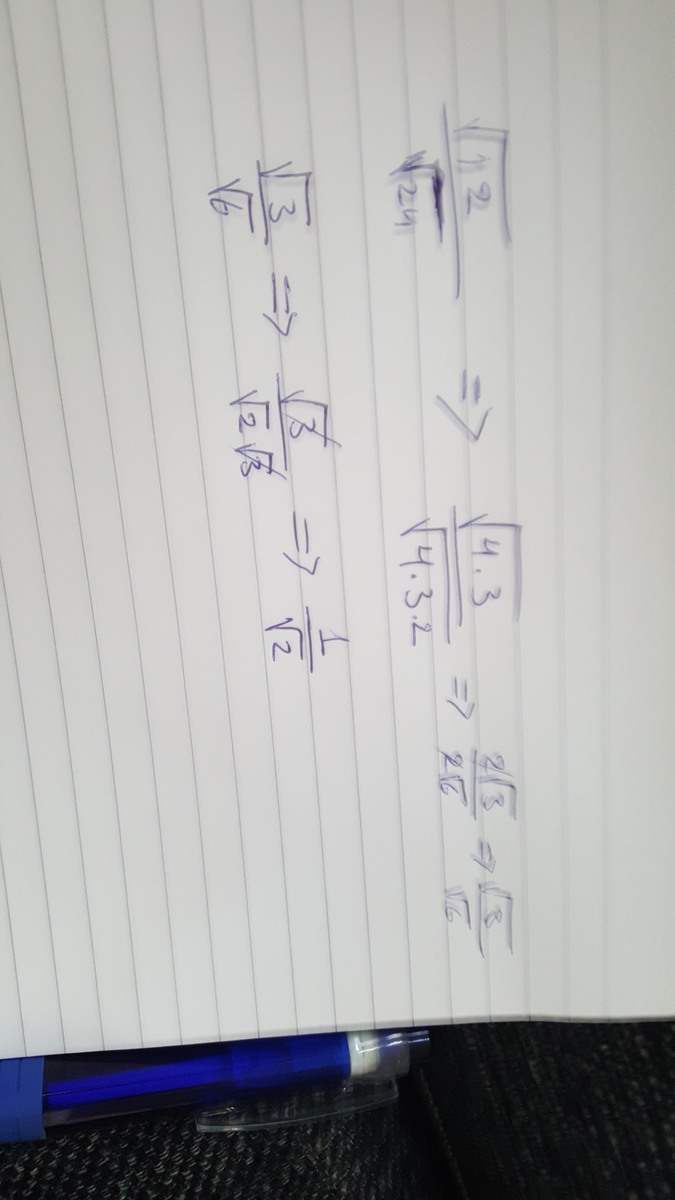 √12/√24 => √4·3/√4·3·2 => 2√3/2√6 => √3/√6
√3/√6 => √3/√2√3 => 1/√2